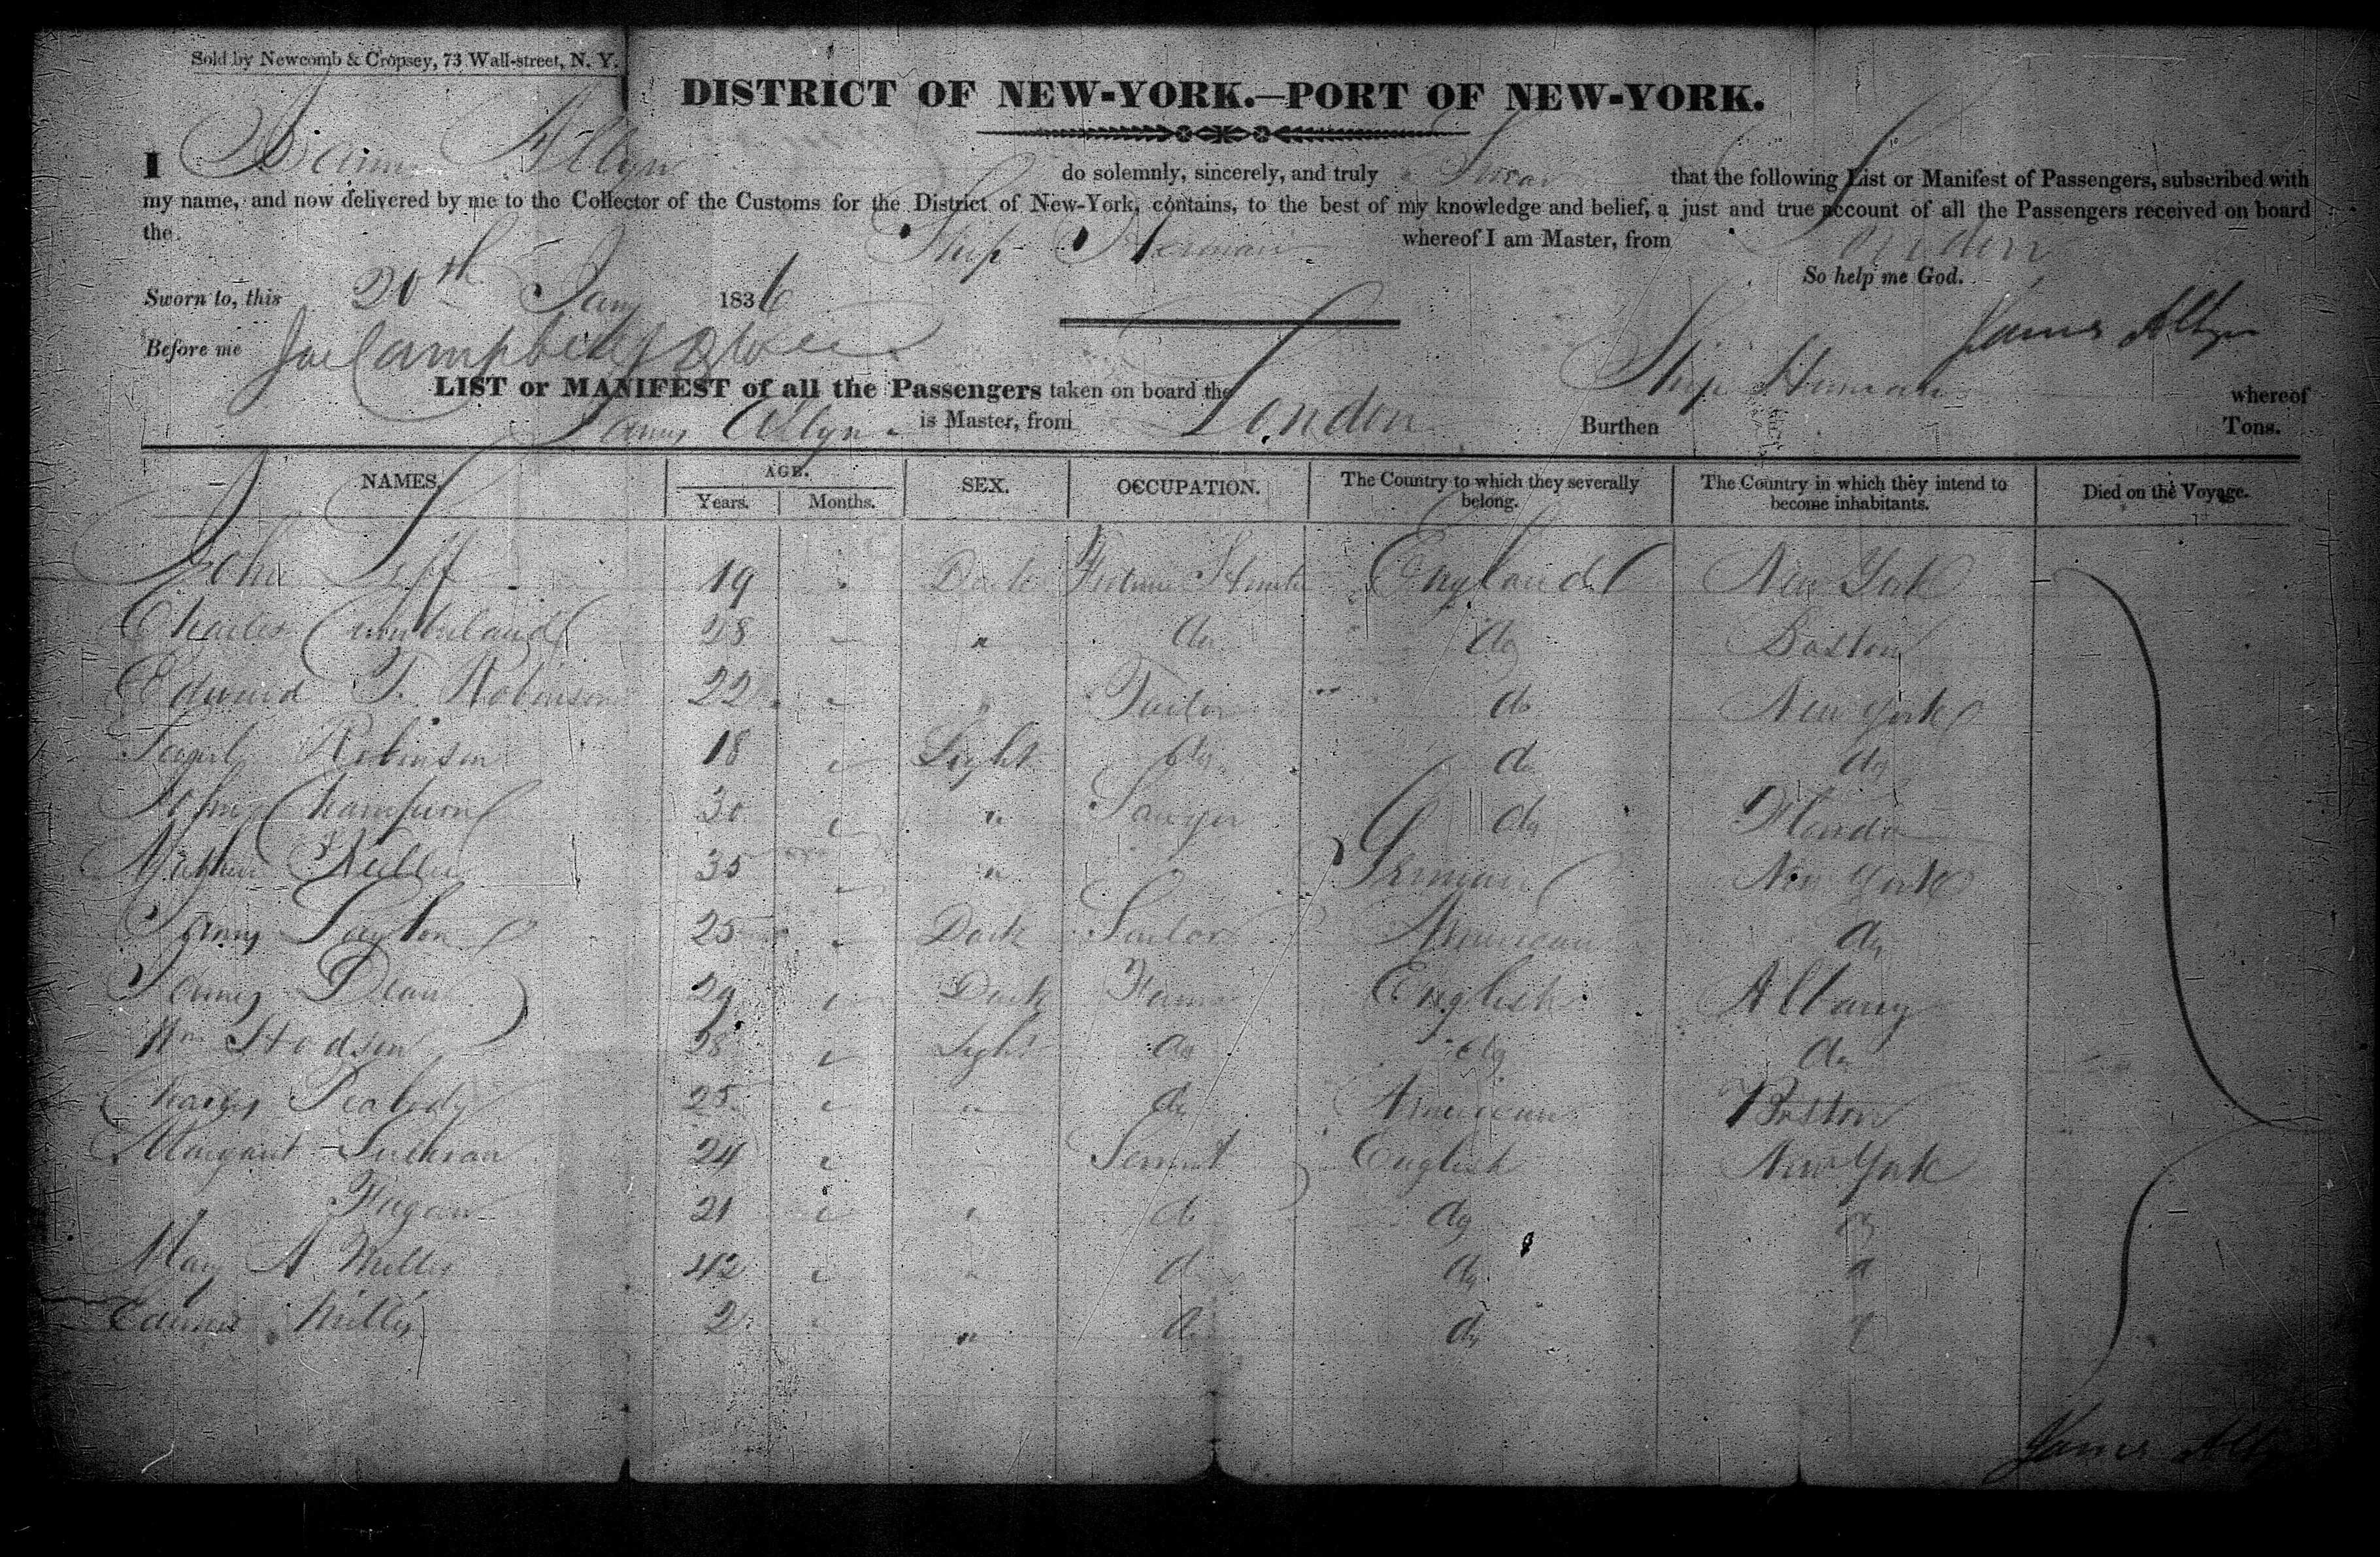 Sold by Newcomb & Cropsey, 73 Wall-street, N. Y.
DISTRICT OF NEW-YORK.—PORT OF NEW-YORK.
I James Allyn do solemnly, sincerely, and truly Swear that the following List or Manifest of Passengers, subscribed with
my name, and now delivered by me to the Collector of the Customs for the District of New-York, contains, to the best of my knowledge and belief, a just and true account of all the Passengers received on board
the Ship whereof I am Master, from London
So help me God.
Sworn to, this 20th Jany 1836
James Allyn
Before me Campbell
LIST or MANIFEST of all the Passengers taken on board the Ship whereof
James Allyn is Master, from London Burthen Tons.
NAMES. AGE. Years. Months. SEX. OCCUPATION. The Country to which they severally belong. The Country in which they intend to become inhabitants. Died on the Voyage.
John 19 Dark England New York
Charles Cumberland 28 " do do Boston
Edward T. Robinson 22 " do New York
Robinson 18 Light do do do
John Champion 30 " Sawyer do Florida
35 " German New York
James Layton 25 Dark American do
James Dean 29 Dark English Albany
Wm Hodson 28 Light do do do
Charles Peabody 25 " do American Boston
Margaret 24 Servant English New York
21 " do do do
Mary A 42 " do do
2 " do do
James Allyn